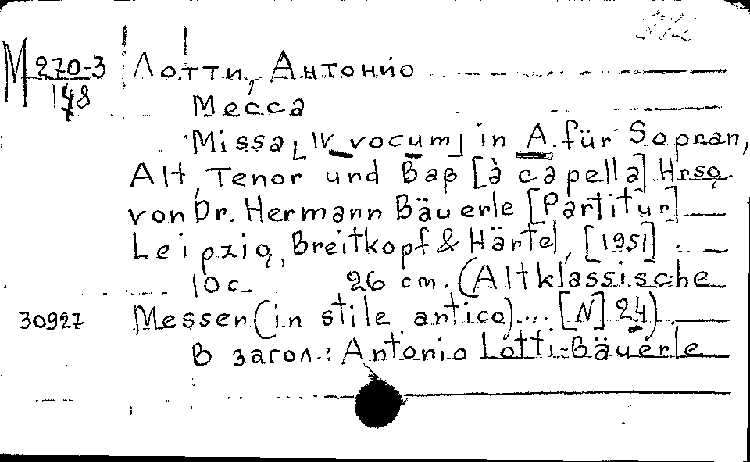 М 270-3
148
Лотти, Антонио
Месса
Missa [IV vocum] in A. für Sopran,
Alt, Tenor und Baß [à capella] Hrsg.
von Dr. Hermann Bäuerle [Partitur]
Leipzig, Breitkopf & Härtel, [1951].
10 с. 26 cm. (Altklassische
30927 Messen (in stile antico).... [N] 24).
В загол.: Antonio Lotti-Bäuerle